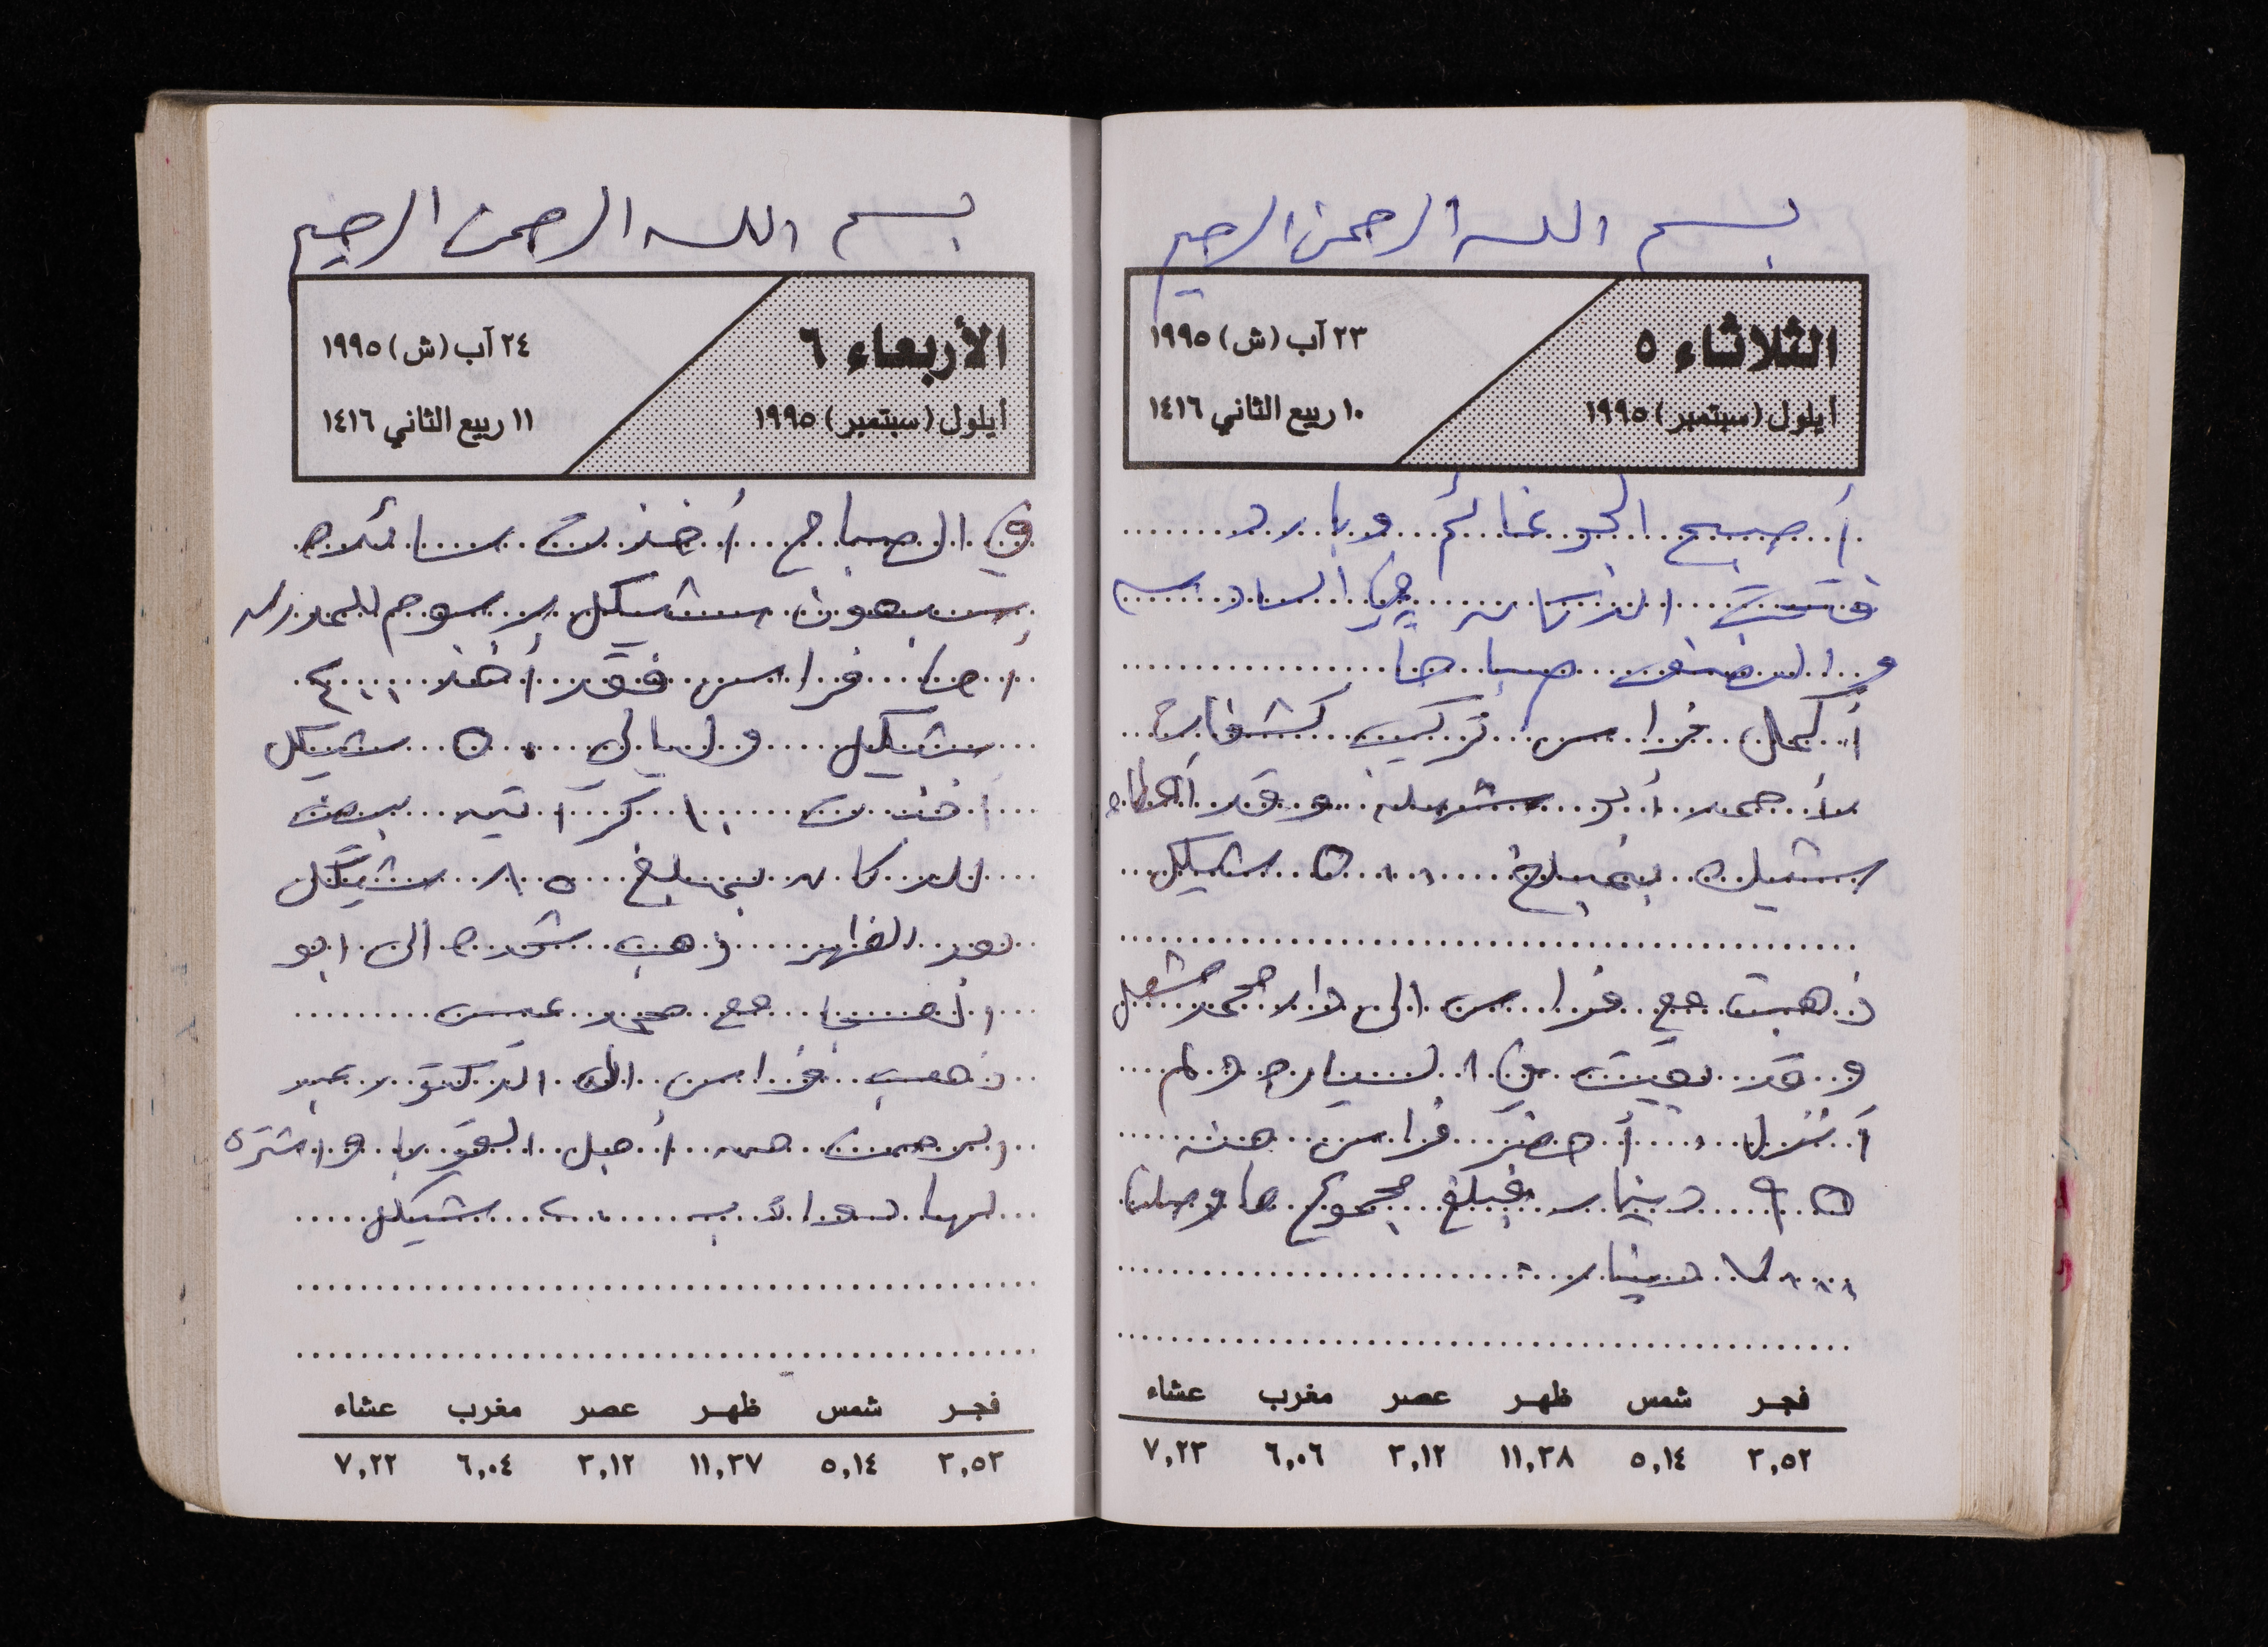 بسم الله الرحمن الرحيم
الثلاثاء ٥
٢٣ آب (ش) ١٩٩٥
أيلول (سبتمبر) ١٩٩٥
١٠ ربيع الثاني ١٤١٦
أصبح الجو غائم وبارد
فتحت الدكانه في السادسه
والنصف صباحا
أكمل فراس تركيب كشفات
لأحمد أبو شهله وقد أعطاه
شيك بمبلغ ٥٠٠ شيكل
ذهبت مع فراس الى دار محمد مشعل
وقد بقيت في السياره ولم
أنزل . أحضر فراس منه
٩٥ دينار فبلغ مجموع ما وصلنا
٧٠٠٠ دينار
فجر شمس ظهر عصر مغرب عشاء
٣,٥٢ ٥,١٤ ١١,٣٨ ٣,١٢ ٦,٠٦ ٧,٢٣
بسم الله الرحمن الرحيم
الأربعاء ٦
٢٤ آب (ش) ١٩٩٥
أيلول (سبتمبر) ١٩٩٥
١١ ربيع الثاني ١٤١٦
في الصباح أخذت سائده
سبعون شيكل رسوم المدرسه
أما فراس فقد أخذ ٤٠٠
شيكل وليالي ٥٠ شيكل
أخذت ١٠ بيض
للدكان بمبلغ ٨٥ شيكل
بعد الظهر ذهب شحده الى ابو
مع محمد عيسى
ذهب فراس الى الدكتور عبد
الرحمن من أجل واشترى
لها دواء ب ٢٠ شيكل
فجر شمس ظهر عصر مغرب عشاء
٣,٥٣ ٥,١٤ ١١,٣٧ ٣,١٢ ٦,٠٤ ٧,٢٢